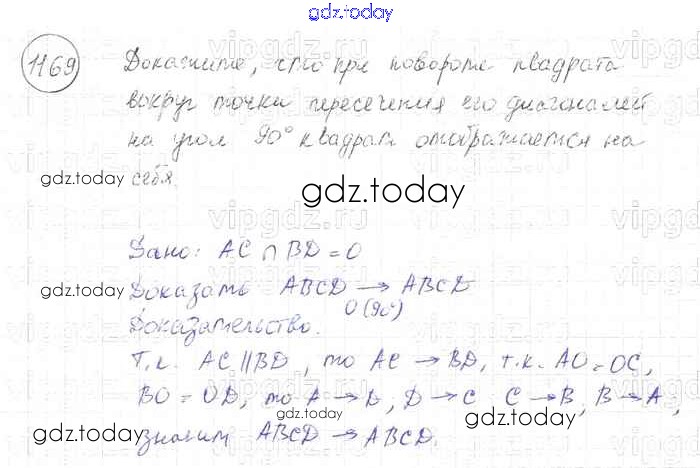 gdz.today
1169
Докажите, что при повороте квадрата
вокруг точки пересечения его диагоналей
на угол 90° квадрат отображается на
gdz.today себя.
gdz.today
Дано: AC ∩ BD = O
gdz.today
Доказать ABCD → ABCD
O (90°)
Доказательство.
Т.к. AC || BD, то AC → BD, т.к. AO = OC,
BO = OD, то A → D, D → C C → B, B → A,
gdz.today gdz.today gdz.today
значит ABCD → ABCD.